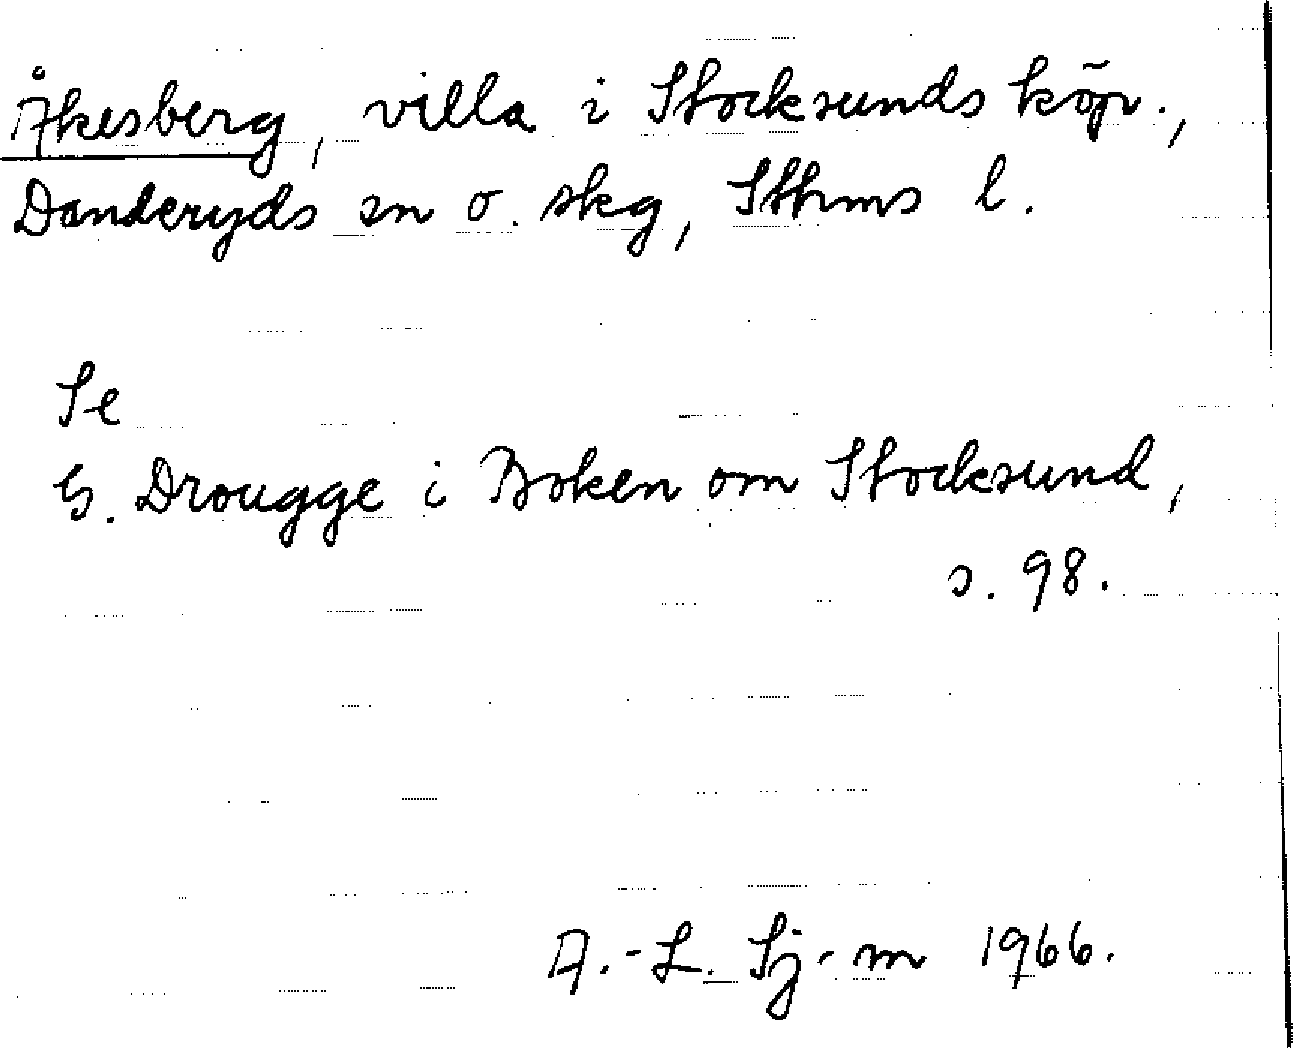 Åkesberg, villa i Stocksunds köp.,
Danderyds sn o. skg, Sthms l.
Se
G. Drougge i Boken om Stocksund,
s. 98.
A.-L. Sj-m 1966.